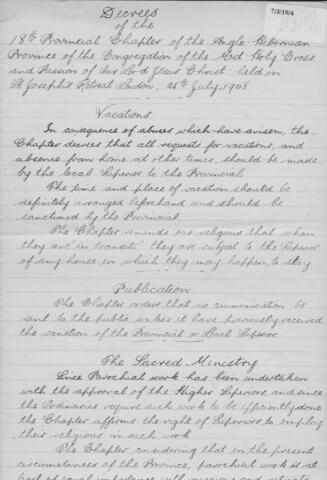 7/3/19/4
Decrees
of the
18th Provincial Chapter of the Anglo-Hibernian
Province of the Congregation of the Most Holy Cross
and Passion of Our Lord Jesus Christ: held in
St Joseph's Retreat London, 25th July, 1908
Vacations.
In consequence of abuses which have arisen, the
Chapter decrees that all requests for vacations, and
absence from home at other times, should be made
by the local Superior to the Provincial
The time and place of vacation should be
definitely arranged beforehand and should be
sanctioned by the Provincial.
The Chapter reminds our religious that when
they are 'in transitu' they are subject to the Superior
of any house in which they may happen to stay
Publication
The Chapter orders that no communication be
sent to the public unless it have previously received
the sanction of the Provincial or Local Superior.
The Sacred Ministry
Since Parochial work has been undertaken
with the approval of the Higher Superiors, and since
the Ordinaries require such work to be efficiently done
the Chapter affirms the right of Superiors to employ
their religious in such work.
The Chapter considering that in the present
circumstances of the Province, parochial work is at
least of equal importance with missions and retreats